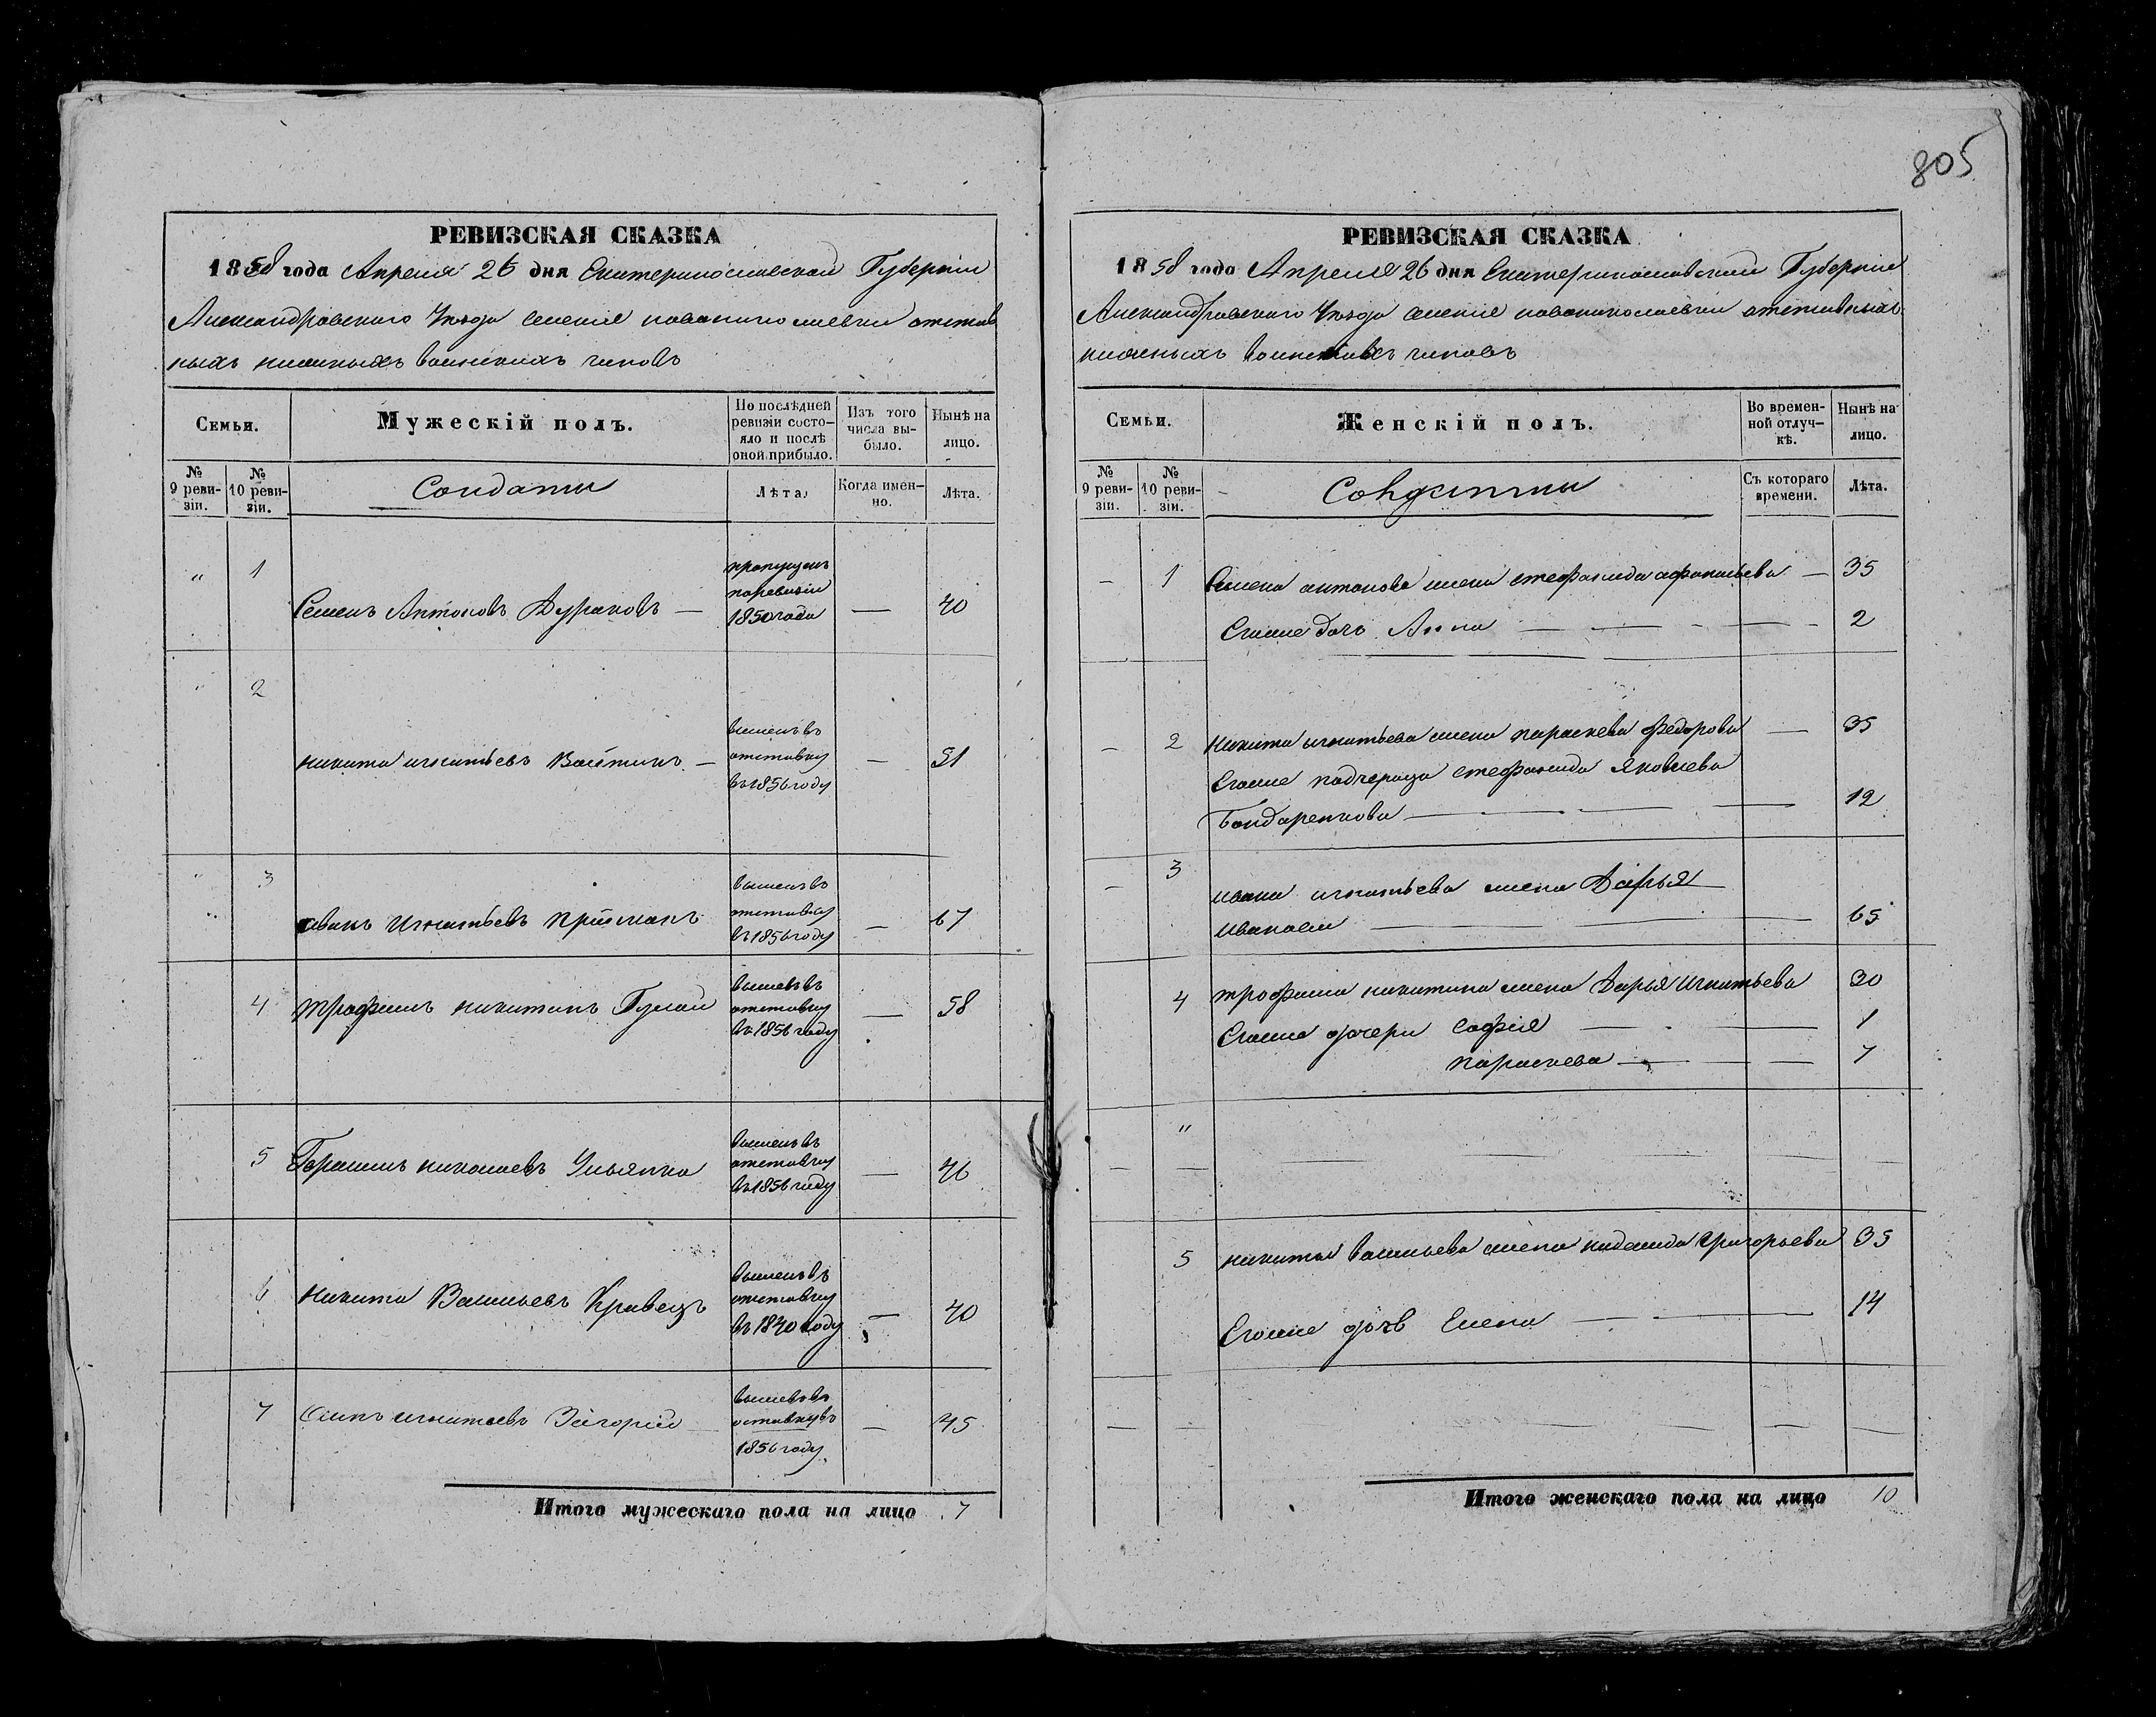 805
РЕВИЗСКАЯ СКАЗКА
1858 года Апреля 26 дня Екатеринославской Губерніи
Александровского Уѣзда селенія новониколаевки отстав
ныхъ нижныхъ воинскихъ чиновъ
Семьи.
Мужескій полъ.
По послѣдней
ревизіи состо-
яло и послѣ
оной прибыло.
Изъ того
числа вы-
было.
Нынѣ на
лицо.
№
9 реви-
зіи.
№
10 реви-
зіи.
Солдаты
Лѣта.
Когда имен-
но.
Лѣта.
" 1
Семенъ Антоновъ Дураковъ — — 40
пропущенъ
поревизіи
1850 года
" 2
никита игнатьевъ — — 51
вышелъ въ
отставку
въ 1856 году
" 3
иванъ игнатьевъ — 67
вышелъ въ
отставку
въ 1856 году
4 трофимъ никитинъ Гулай — 58
вышелъ въ
отставку
въ 1856 году
5 Герасимъ николаевъ Ульянко — 46
вышелъ въ
отставку
въ 1856 году
6 никита Васильевъ Кравецъ — 40
вышелъ въ
отставку
въ 1840 году
7 игнатьевъ — 45
вышелъ въ
оставку въ
1856 году.
Итого мужескаго пола на лицо 7
РЕВИЗСКАЯ СКАЗКА
1858 года Апреля 26 дня Екатеринославской Губерніи
Александровского Уѣзда селенія новониколаевки отставныхъ
нижныхъ воинскихъ чиновъ
Семьи.
Женскій полъ.
Во времен-
ной отлуч-
кѣ.
Нынѣ на
лицо.
№
9 реви-
зіи.
№
10 реви-
зіи.
Солдатты
Съ котораго
времени.
Лѣта.
— 1 Семена антонова жена стефанида афанасьева — 35
Егоже дочь Анна — — — 2
— 2 никита игнатьева жена параскева федорова — 35
Егоже падчерица стефанида яковлева
Бондаренкова — — — 12
— 3 ивана игнатьева жена Дарья
иванова — — — 65
4 трофима никитина жена Дарья игнатьева 30
Егоже дочери софія — — 1
параскева — — 7
"
— — — — — — —
5 никиты васильева жена надежда григорьева 35
Егоже дочь Елена — — 14
— — — — —
Итого женскаго пола на лицо 10